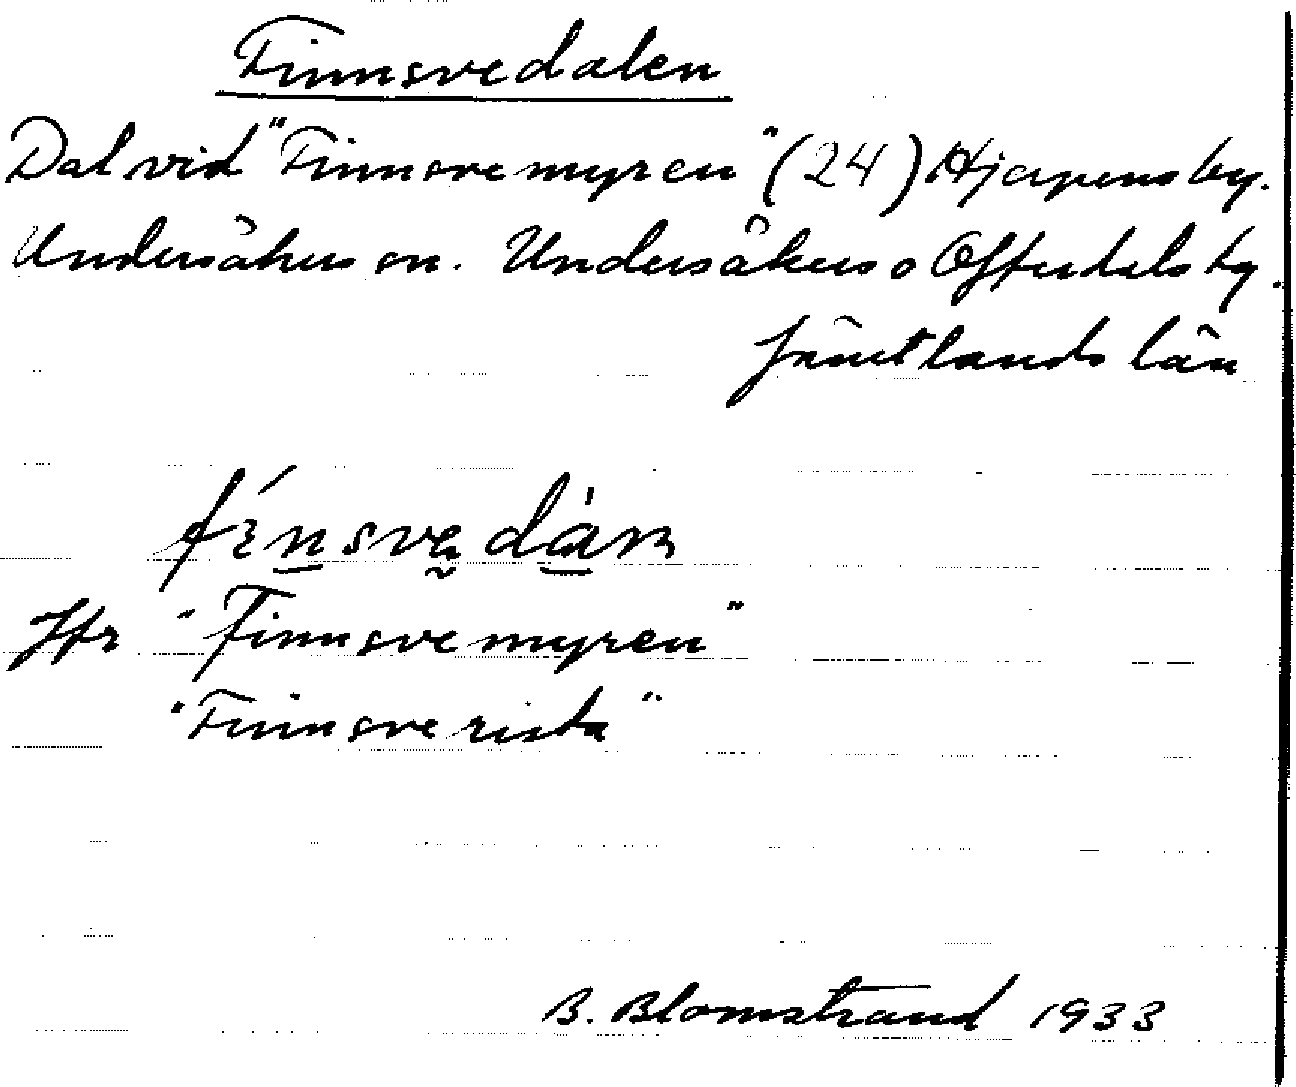 Finnsvedalen
Dal vid "Finnsvemyren" (24) Hjerpens by.
Undersåkers sn. Undersåkers o Offerdals tg.
Jämtlands län
fínsvedàrn
Jfr "Finnsvemyren"
"Finnsverista"
B. Blomstrand 1933